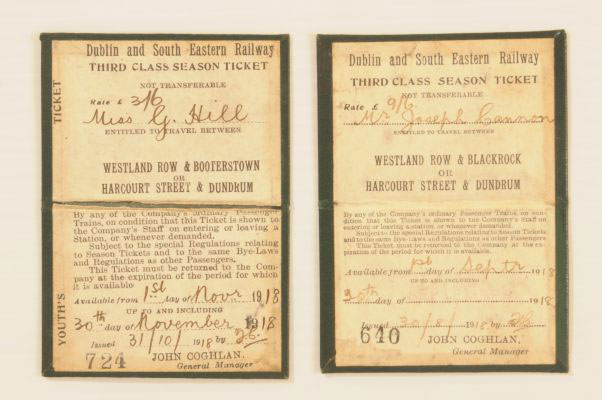 Dublin and South Eastern Railway
THIRD CLASS SEASON TICKET
NOT TRANSFERABLE
Rate £ 3/6
Miss G. Hill
ENTITLED TO TRAVEL BETWEEN
WESTLAND ROW & BOOTERSTOWN
OR
HARCOURT STREET & DUNDRUM
By any of the Company's ordinary Passenger
Trains, on condition that this Ticket is shown to
the Company's Staff on entering or leaving a
Station, or whenever demanded.
Subject to the special Regulations relating
to Season Tickets and to the same Bye-Laws
and Regulations as other Passengers.
This Ticket must be returned to the Com-
pany at the expiration of the period for which
it is available
Available from 1st day of Novr 1918
UP TO AND INCLUDING
30th day of November 1918
Issued 31/10/1918 by
724
JOHN COGHLAN,
General Manager
YOUTH'S TICKET
Dublin and South Eastern Railway
THIRD CLASS SEASON TICKET
NOT TRANSFERABLE
Rate £ 9/6
Mr Joseph Cannon
ENTITLED TO TRAVEL BETWEEN
WESTLAND ROW & BLACKROCK
OR
HARCOURT STREET & DUNDRUM
By any of the Company's ordinary Passenger Trains, on con-
dition that this Ticket is shown to the Company's Staff on
entering or leaving a station, or whenever demanded.
Subject to the special Regulations relating to Season Tickets
and to the same Bye-Laws and Regulations as other Passengers
This Ticket must be returned to the Company at the ex-
piration of the period for which it is available.
Available from 1st day of Septr 1918
UP TO AND INCLUDING
30th day of 1918
Issued 30/8/1918 by
640
JOHN COGHLAN,
General Manager